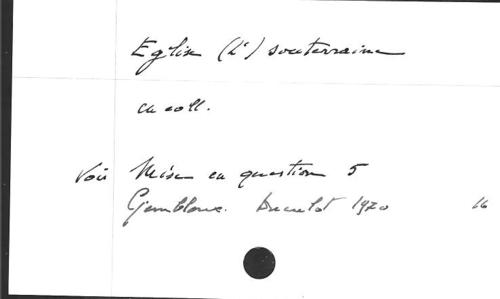 Eglise (L') souterraine
en coll.
Voir Mise en question 5
Gembloux. Duculot 1970 16